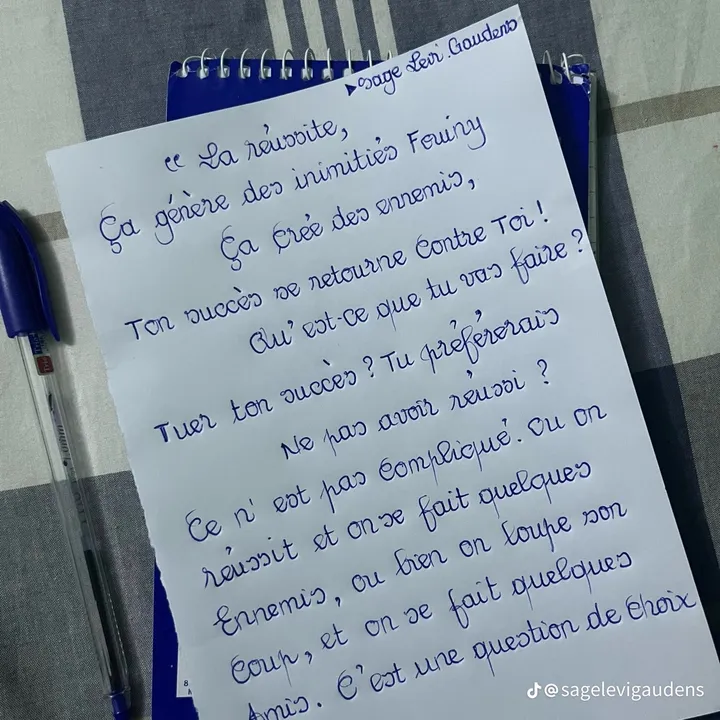 ▶Sage Levi.Gaudens
“ La réussite,
Ça génère des inimitiés Fouiny
Ça Crée des ennemis,
Ton succès se retourne Contre Toi !
Qu'est-ce que tu vas faire ?
Tuer ton succès ? Tu préférerais
Ne pas avoir réussi ?
Ce n'est pas Compliqué. Ou on
réussit et on se fait quelques
Ennemis, ou bien on loupe son
Coup, et on se fait quelques
Amis. C'est une question de Choix
@sagelevigaudens